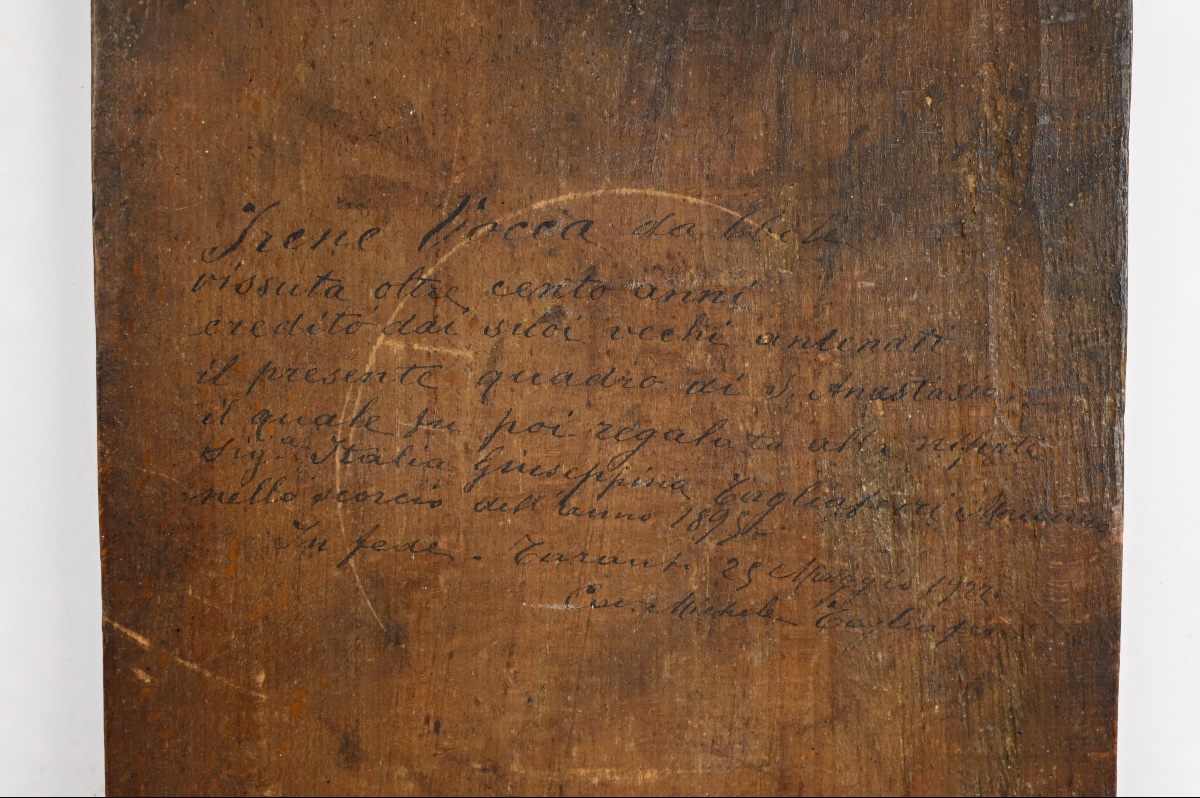 Irene Vocca da
vissuta oltre cento anni
eredito dai suoi vechi antenati
il presente quadro di S. Anastasio,
il quale fu poi regalato alla nipote
Sig.ª Italia Giuseppina Tagliaferri
nello scorcio dell'anno 1895.
In fede - Taranto 25 Maggio 1922.
Cav. Michele Tagliaferri